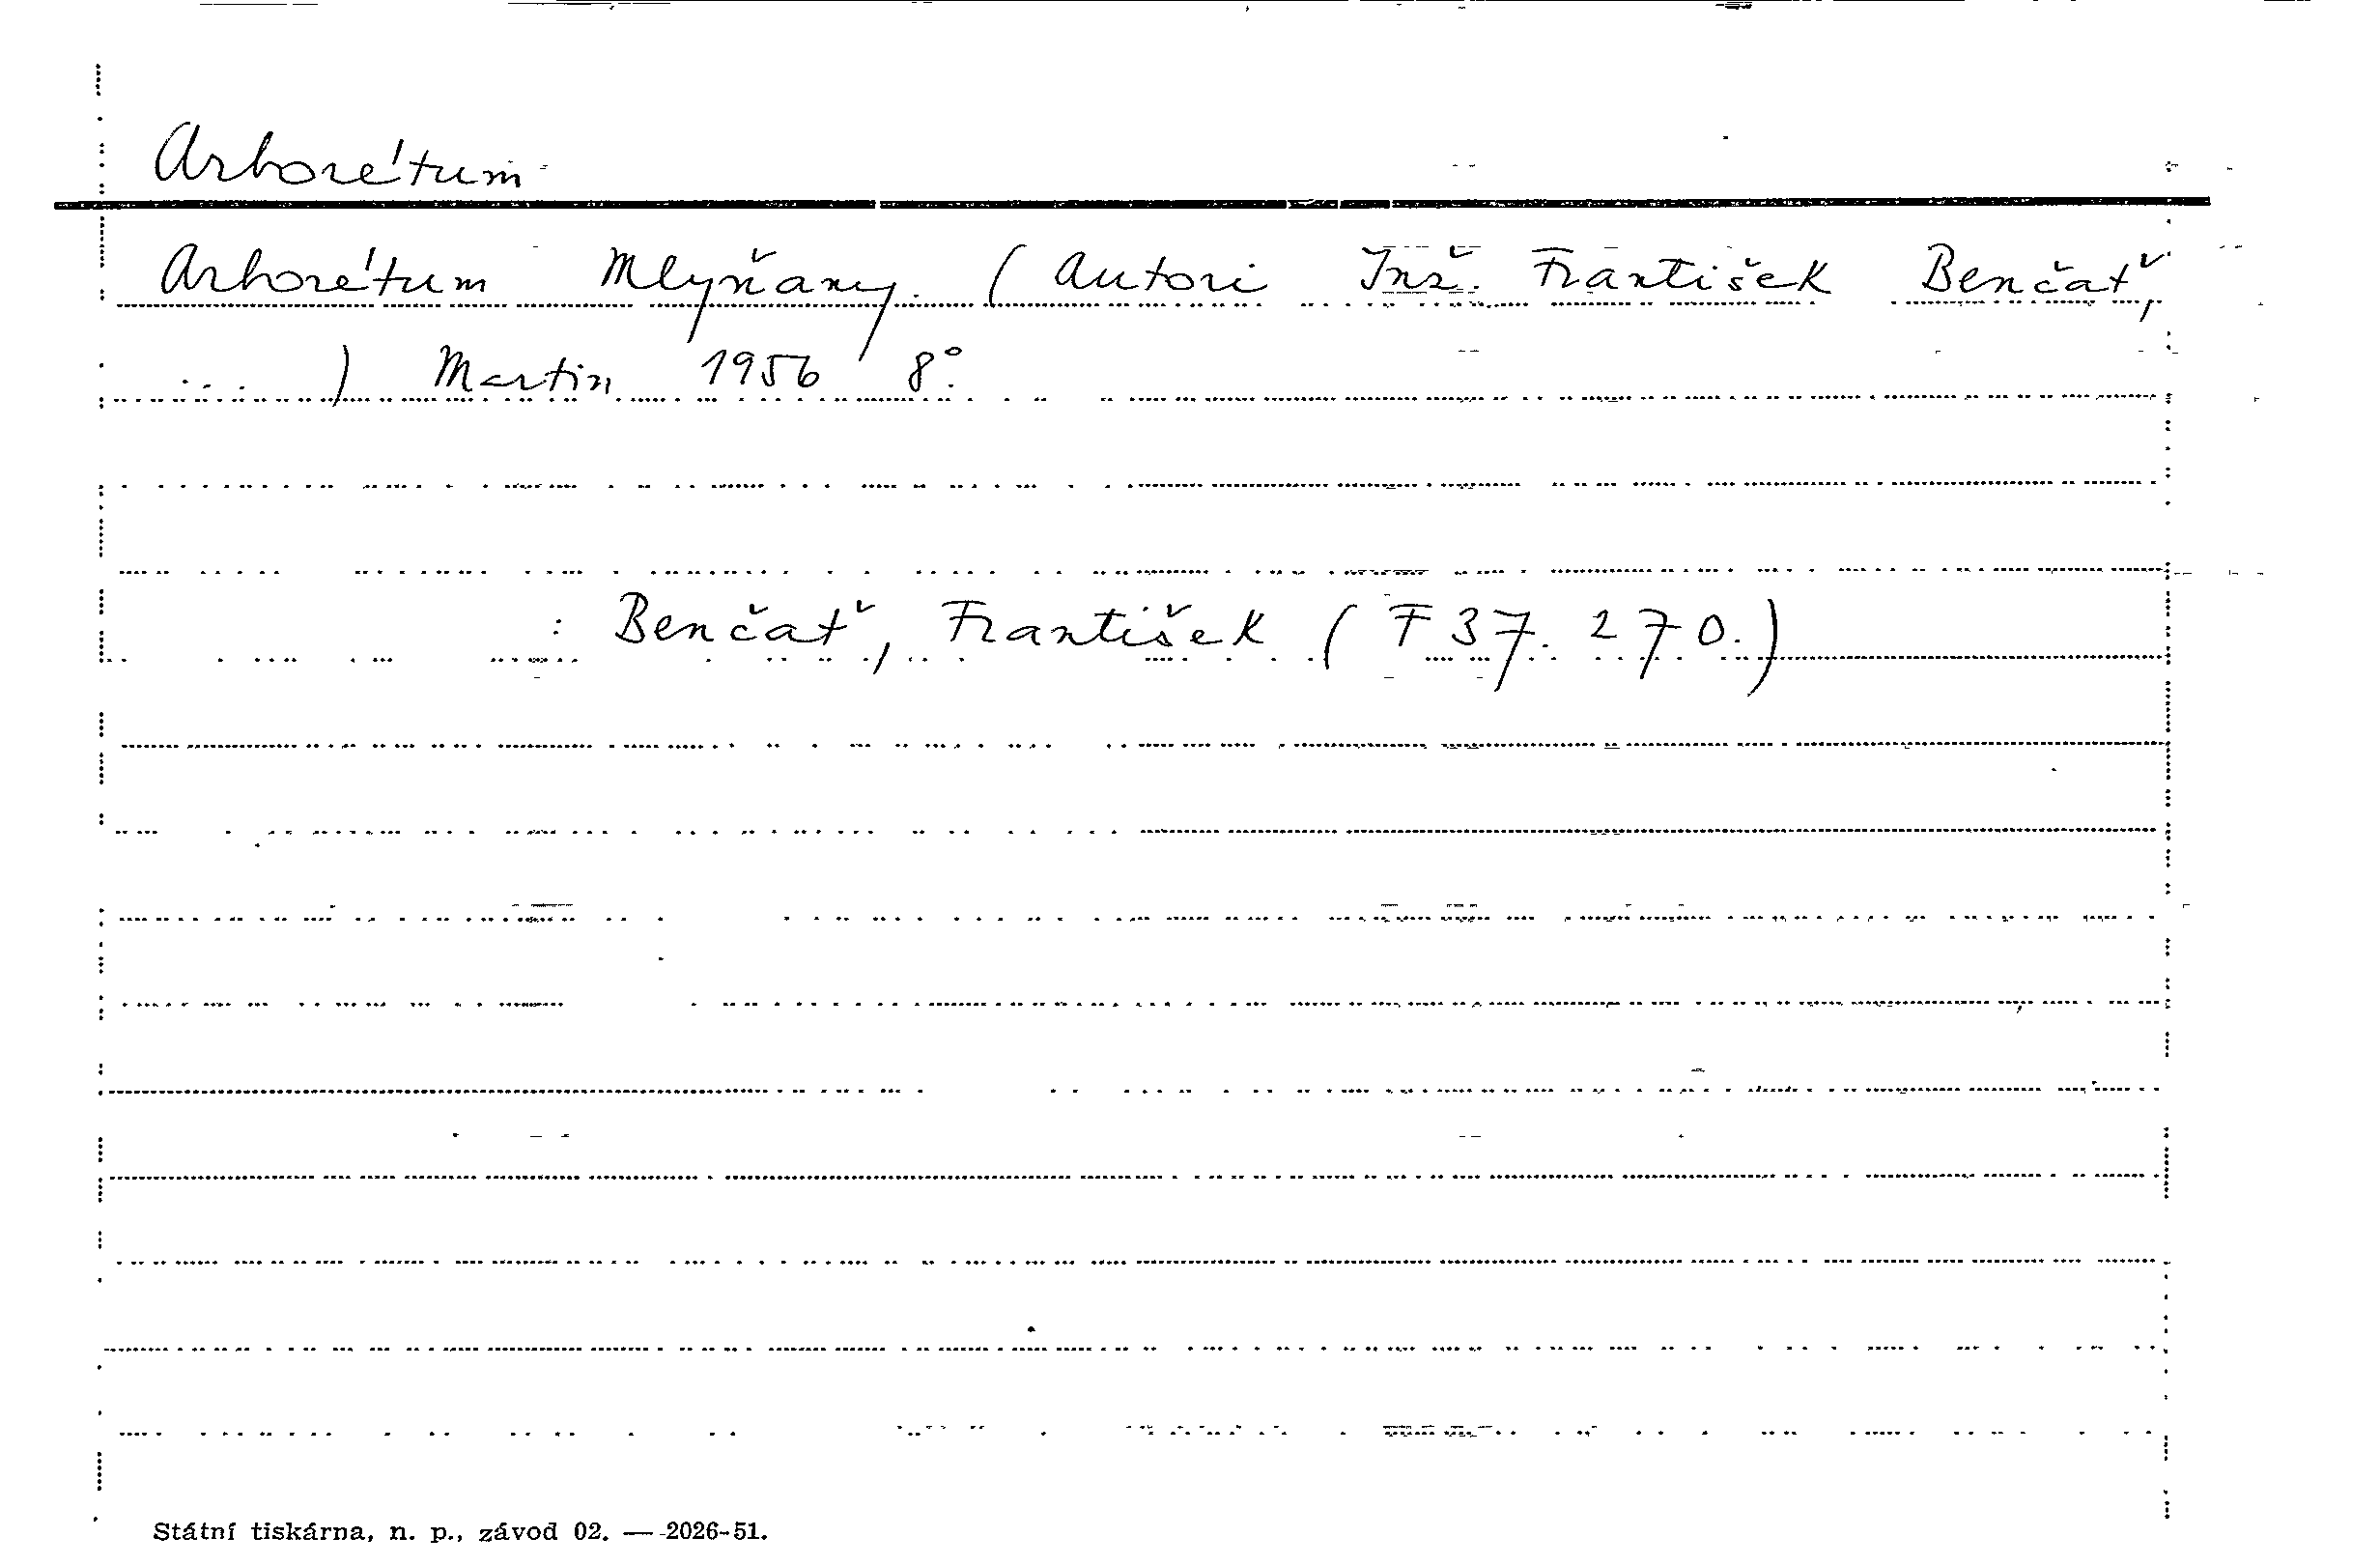 Arborétum
Arborétum Mlyňany. (Autori Inž. František Benčať,
...) Martin 1956 8°.
: Benčať, František (F 37.270.)
Státní tiskárna, n. p., závod 02. — 2026-51.